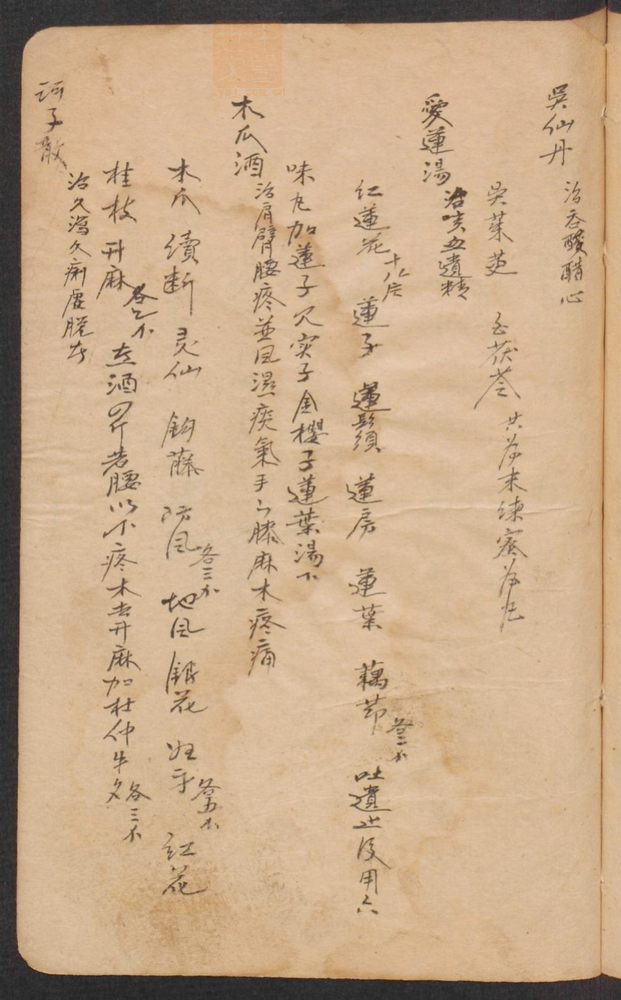 吳仙丹 治吞酸醋心
吳茱萸 白茯苓 共為末煉蜜為丸
愛蓮湯 治咳血遺精
紅蓮花 蓮子 蓮鬚 蓮房 蓮葉 藕節 各三 吐遺止後用六
味丸加蓮子芡实子金櫻子蓮葉湯下
木瓜酒 治肩臂腰疼並風濕痰氣手足膝麻木疼痛
木瓜 續断 灵仙 鈎藤 防風 各三 地風 銀花 各五 紅花
桂枝 升麻 各 酒四斤若腰以下疼木去升麻加杜仲牛夕各三
訶子散 治久瀉久痢虛脱